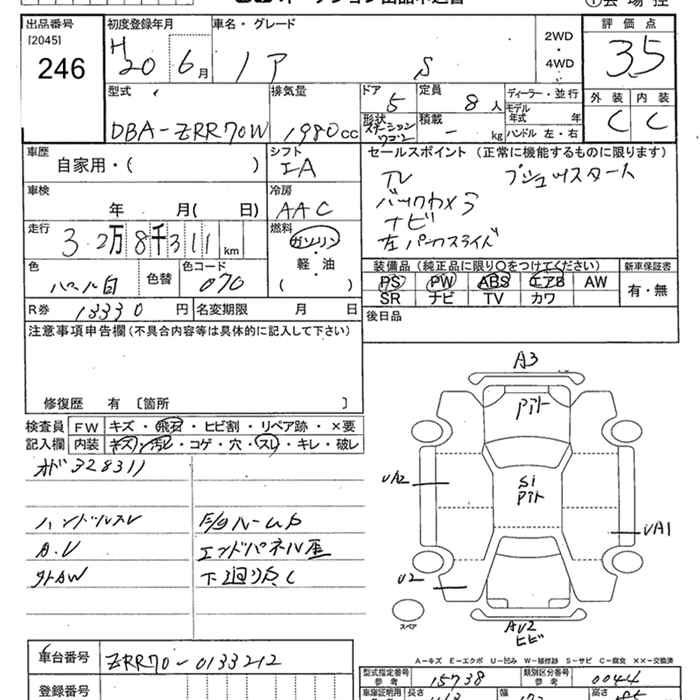 出品番号 初度登録年月 車名・グレード ①会場控
[2045] 評価点
246 H20 6月 ノア S 2WD・4WD 3.5
型式 排気量 ドア 5 定員 8人 ディーラー・並行 外装 内装
DBA-ZRR70W 1980cc 形状 ステーションワゴン 積載 - kg モデル年式 年 C C
ハンドル 左・右
車歴 シフト セールスポイント (正常に機能するものに限ります)
自家用・( ) IA TV プシュスタート
車検 冷房 バックカメラ
年 月( 日) AAC ナビ
走行 燃料 左パワースライド
3.2万8千311km ガソリン・軽・油・( )
色 色替 色コード 装備品(純正品に限り〇をつけてください) 新車保証書
パール白 070 PS PW ABS エアB AW 有・無
SR ナビ TV カワ
R券 13330円 名変期限 月 日 後日品
注意事項申告欄(不具合内容等は具体的に記入して下さい)
修復歴 有 〔箇所 〕
検査員 FW キズ・飛石・ヒビ割・リペア跡・×要
記入欄 内装 キズ・汚レ・コゲ・穴・スレ・キレ・破レ
オド328311
ハンドルスレ
A.U エンドパネル歪
外AW 下廻りS.C
A3
アバト
UA2
Si
UA1
U2
スペア
AU2
ヒビ
A-キズ E-エクボ U-凹ミ W-補修跡 S-サビ C-腐食 ××-交換済
車台番号 ZRR70-0133212
型式指定番号 参考 15738 類別区分番号 参考 0044
登録番号